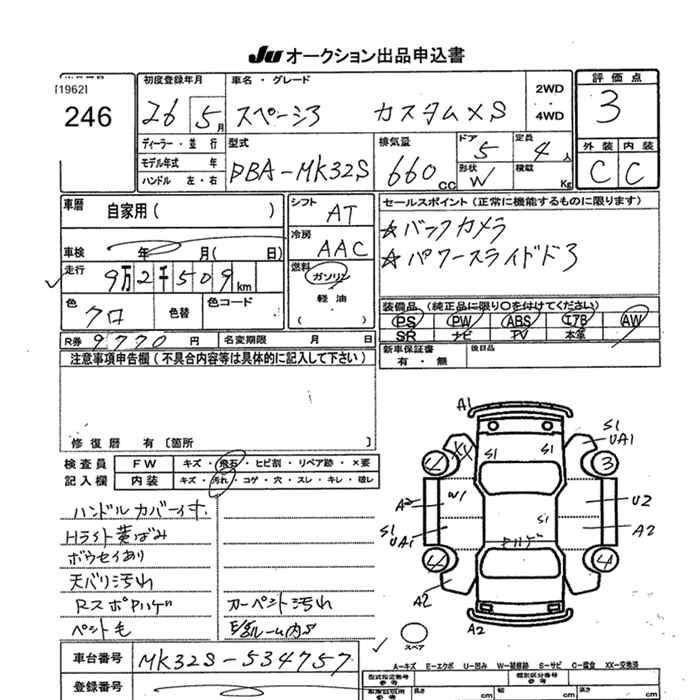 JU オークション出品申込書
[1962]
246
初度登録年月
26 5月
車名・グレード
スペーシア カスタムXS
2WD
・
4WD
評価点
3
外装 内装
C C
ディーラー・並行
モデル年式 年
ハンドル 左・右
型式
DBA-MK32S
排気量
660 CC
ドア
5
形状
W
定員
4人
積載
Kg
車歴
自家用( )
車検 年 月( 日)
走行
9万2千509km
色
クロ
色替
色コード
シフト
AT
冷房
AAC
燃料
ガソリン
軽油
( )
セールスポイント(正常に機能するものに限ります)
☆バックカメラ
☆パワースライドドア
装備品(純正品に限り〇を付けてください)
PS PW ABS エアB AW
SR ナビ TV 本革
R券 9770円
名変期限 月 日
新車保証書
有・無
後日品
注意事項申告欄(不具合内容等は具体的に記入して下さい)
修復歴 有〔箇所 〕
検査員
記入欄
FW キズ・飛石・ヒビ割・リペア跡・×要
内装 キズ・汚れ・コゲ・穴・スレ・キレ・破レ
ハンドルカバー付
Hライト黄ばみ
ボウセイあり
天バリ汚れ
Rスポハゲ
ペント毛
カーペント汚れ
ルーム内S
A1
S1
UA1
XX
S1
S1
3
A2
W1
U2
S1
UA1
S1
A2
ハゲ
4
4
A2
A2
スペア
A-キズ E-エクボ U-凹み W-補修跡 S-サビ C-腐食 XX-交換済
車台番号
MK32S-534757
登録番号
型式指定番号
参考
類別区分番号
参考
長さ cm cm cm